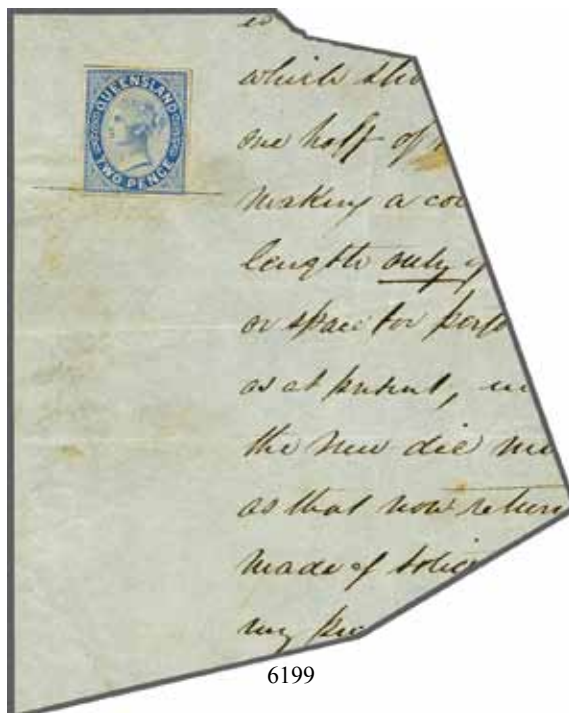 QUEENSLAND
TWO PENCE
which
one half of
making a
length only
or space for
as at present,
the new die
as that now
made of
my
6199